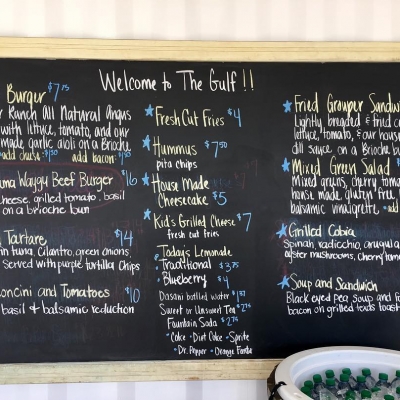 Welcome to The Gulf!!
Burger $7.75
Ranch All Natural Angus
with lettuce, tomato, and our
made garlic aioli on a Brioche
add cheese add bacon
Wagyu Beef Burger $16
cheese, grilled tomato, basil
on a brioche bun
Tartare $14
tuna, cilantro, green onions,
served with purple tortilla chips
and Tomatoes $10
basil & balsamic reduction
Fresh Cut Fries $4
Hummus $7.50
pita chips
House Made
Cheesecake $5
Kid's Grilled Cheese $7
fresh cut fries
Today's Lemonade
Traditional $3.75
Blueberry $4
Dasani bottled water
Sweet or Unsweet Tea
Fountain Soda
Coke Diet Coke Sprite
Dr. Pepper Orange Fanta
Fried Grouper Sandwi
Lightly breaded & fried
lettuce, tomato, & our house
dill sauce on a Brioche bu
Mixed Green Salad
Mixed greens, cherry tomat
house made, gluten free,
balsamic vinaigrette add
Grilled Cobia
Spinach, radicchio, arugula
oyster mushrooms, cherry tom
Soup and Sandwich
Black eyed pea soup and
bacon on grilled texas toast